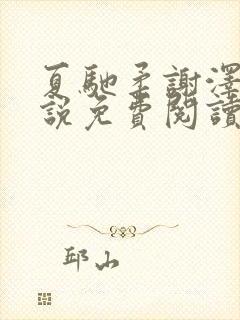 夏馳柔謝澤
說免費閱讀
邱山